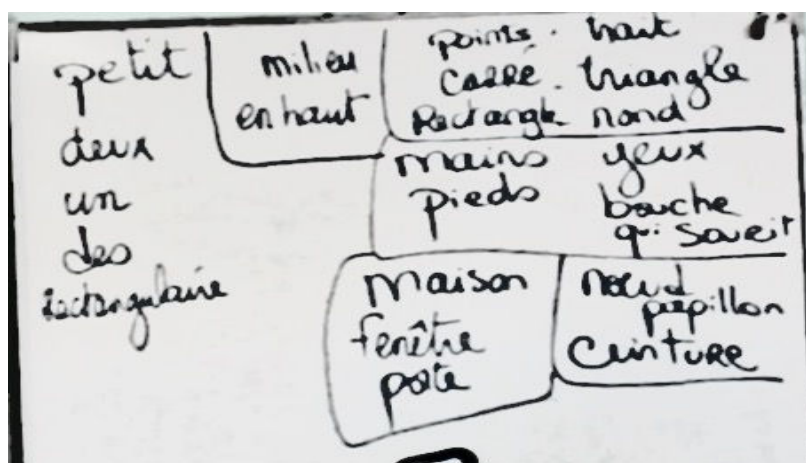 petit
deux
un
des
rectangulaire
milieu
en haut
points. trait
carré. triangle
Rectangle rond
mains yeux
pieds bouche
qui sourit
maison
fenêtre
porte
noeud
papillon
ceinture